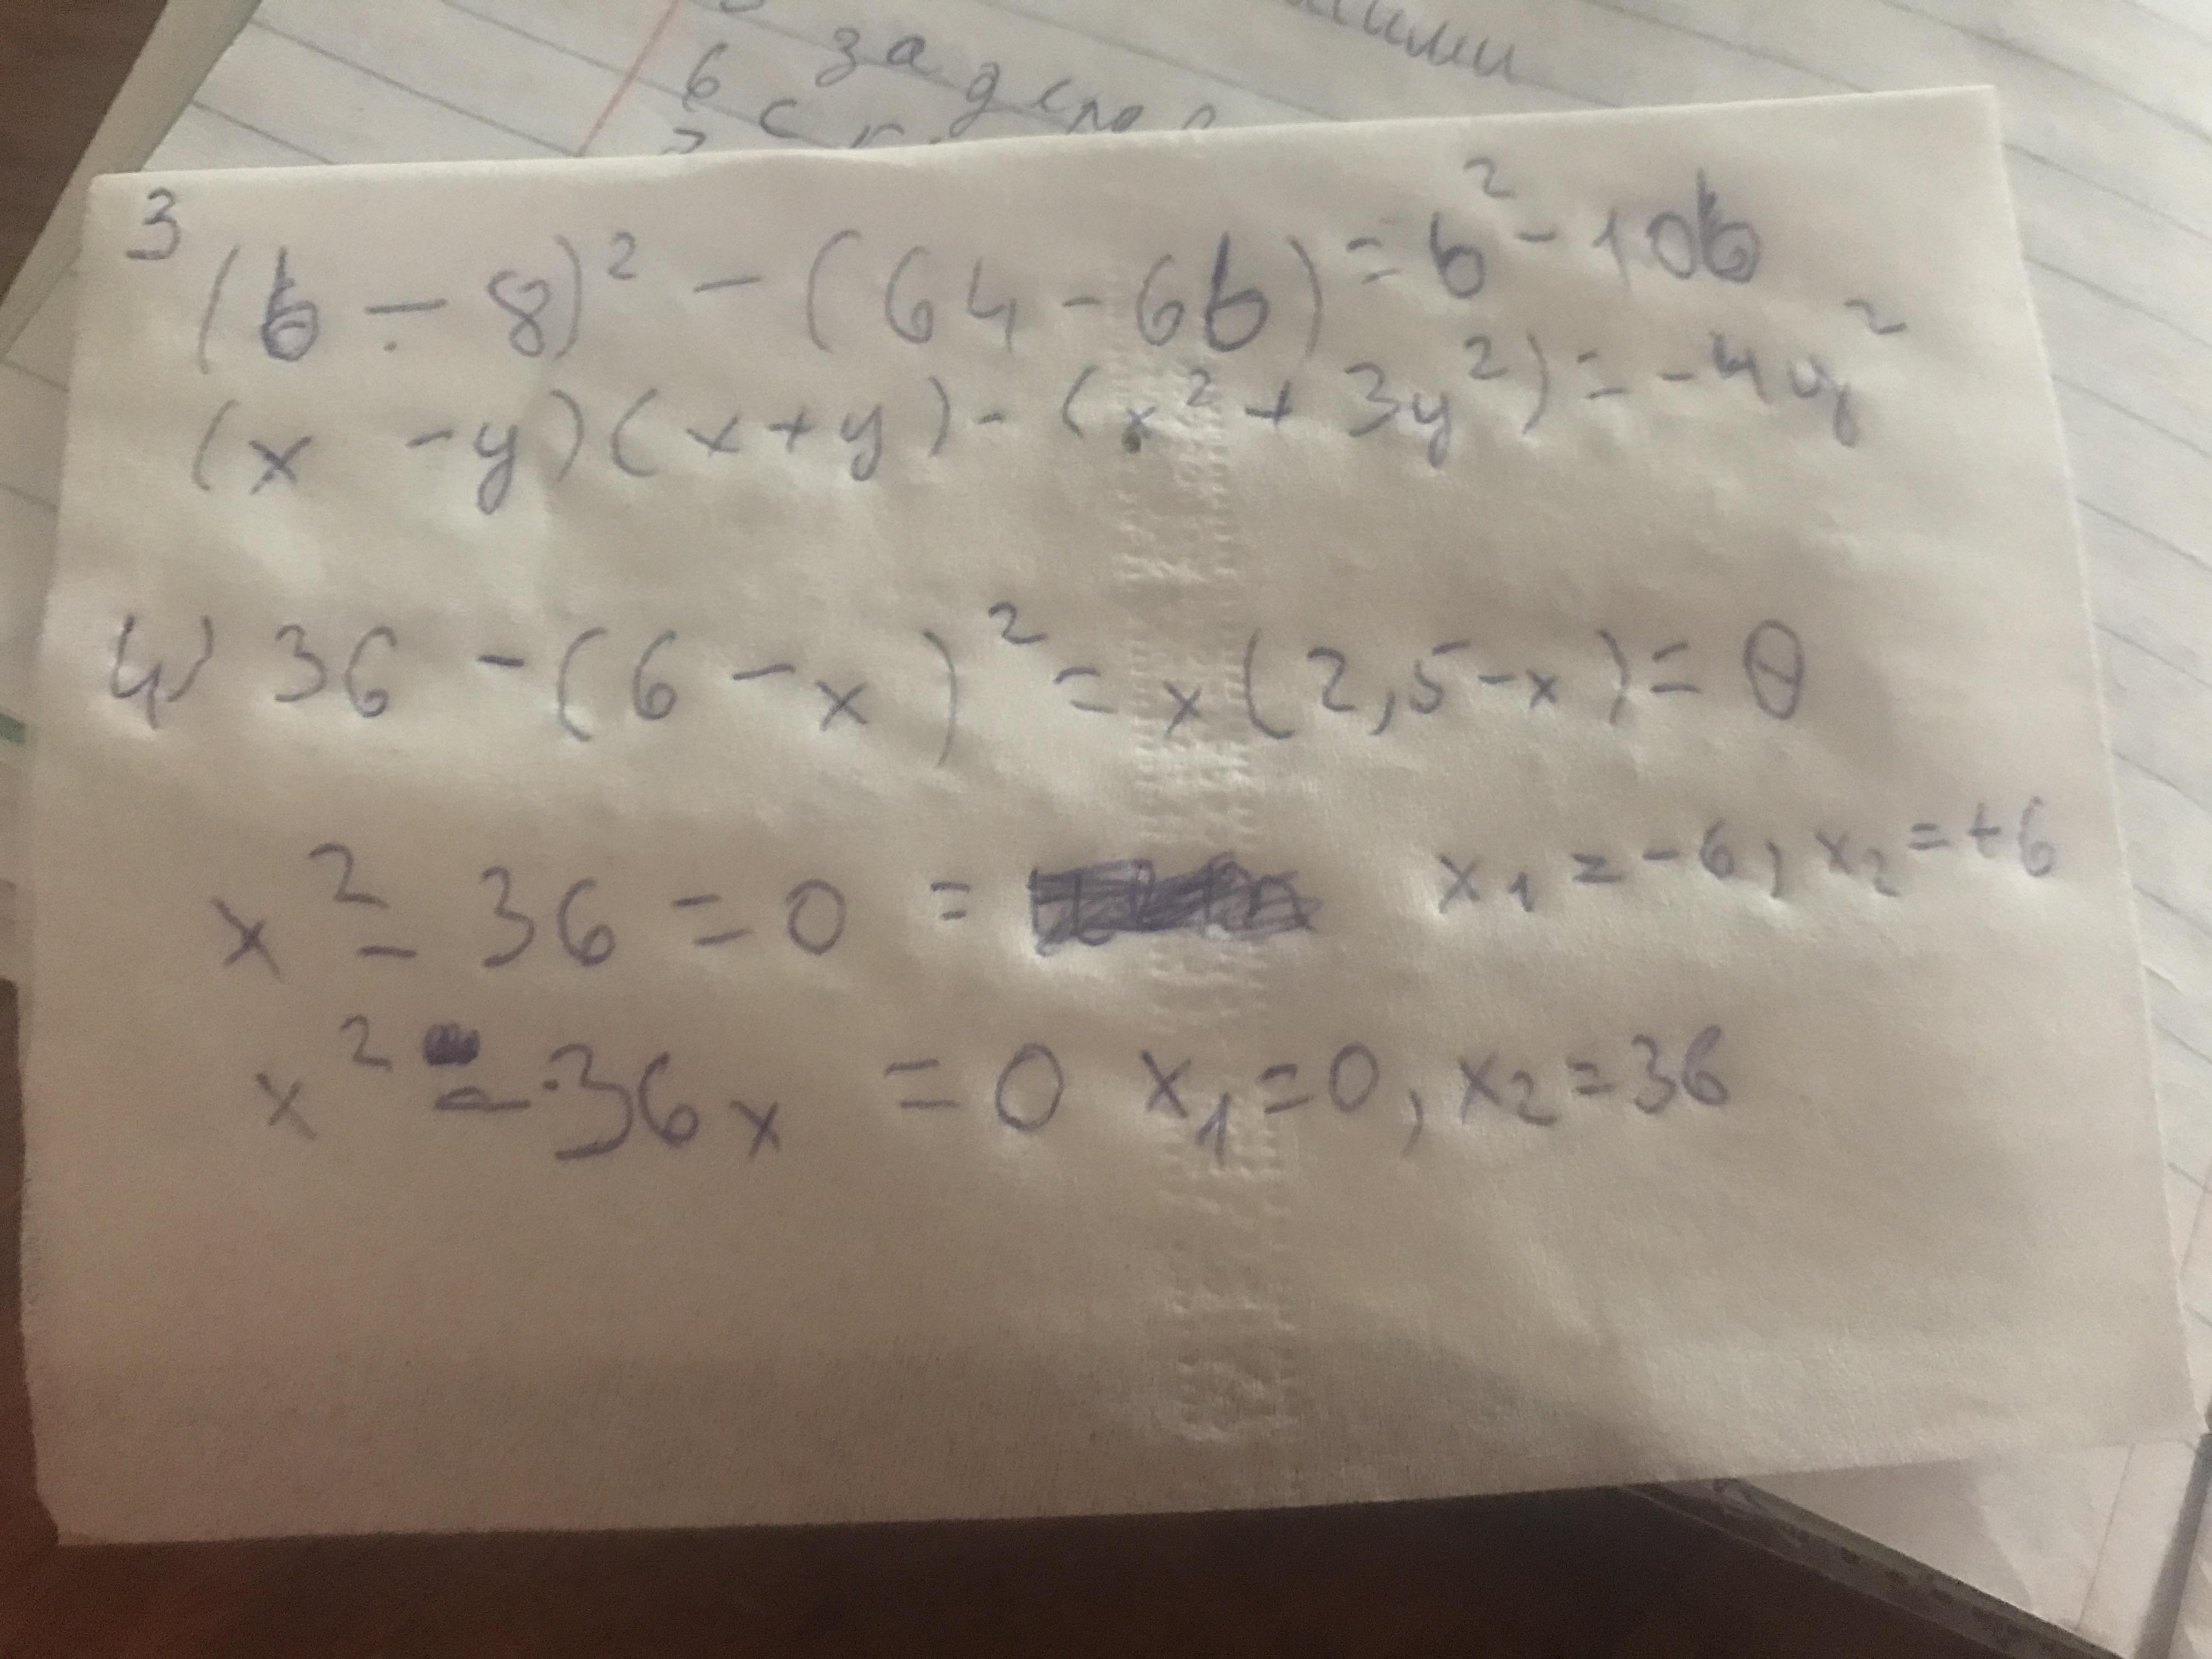 6 за
3
(b - 8)² - (64 - 6b) = b² - 10b
(x - y)(x + y) - (x² + 3y²) = -4y²
4) 36 - (6 - x)² = x(2,5 - x) = 0
x² - 36 = 0 = x₁ = -6, x₂ = +6
x² - 36x = 0 x₁ = 0, x₂ = 36